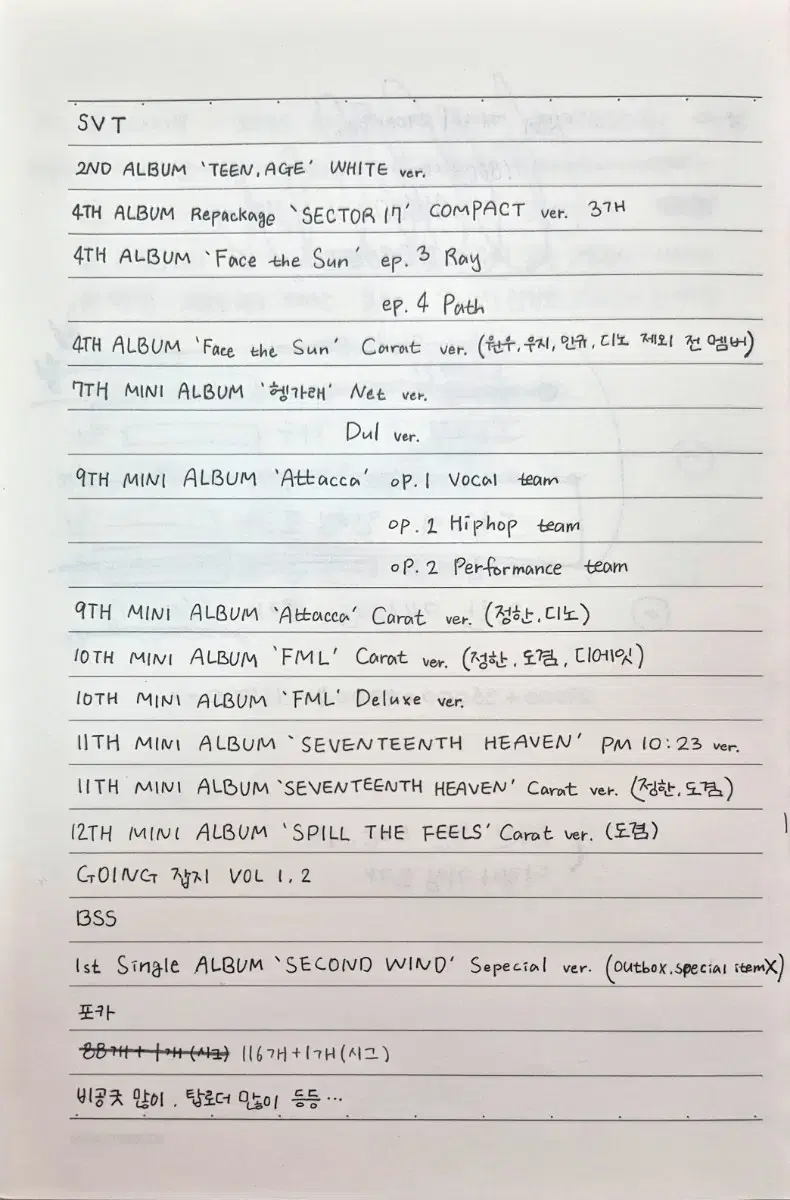 SVT
2ND ALBUM 'TEEN, AGE' WHITE ver.
4TH ALBUM Repackage 'SECTOR 17' COMPACT ver. 3개
4TH ALBUM 'Face the Sun' ep. 3 Ray
ep. 4 Path
4TH ALBUM 'Face the Sun' Carat ver. (원우, 우지, 민규, 디노 제외 전 멤버)
7TH MINI ALBUM '헹가래' Net ver.
Dul ver.
9TH MINI ALBUM 'Attacca' op. 1 Vocal team
op. 2 Hiphop team
op. 2 Performance team
9TH MINI ALBUM 'Attacca' Carat ver. (정한, 디노)
10TH MINI ALBUM 'FML' Carat ver. (정한, 도겸, 디에잇)
10TH MINI ALBUM 'FML' Deluxe ver.
11TH MINI ALBUM 'SEVENTEENTH HEAVEN' PM 10:23 ver.
11TH MINI ALBUM 'SEVENTEENTH HEAVEN' Carat ver. (정한, 도겸)
12TH MINI ALBUM 'SPILL THE FEELS' Carat ver. (도겸)
GOING 잡지 VOL 1, 2
BSS
1st Single ALBUM 'SECOND WIND' Sepecial ver. (outbox, special item X)
포카
88개 + 1개 (시그) 116개 + 1개 (시그)
비공굿 많이, 탑로더 많이 등등...